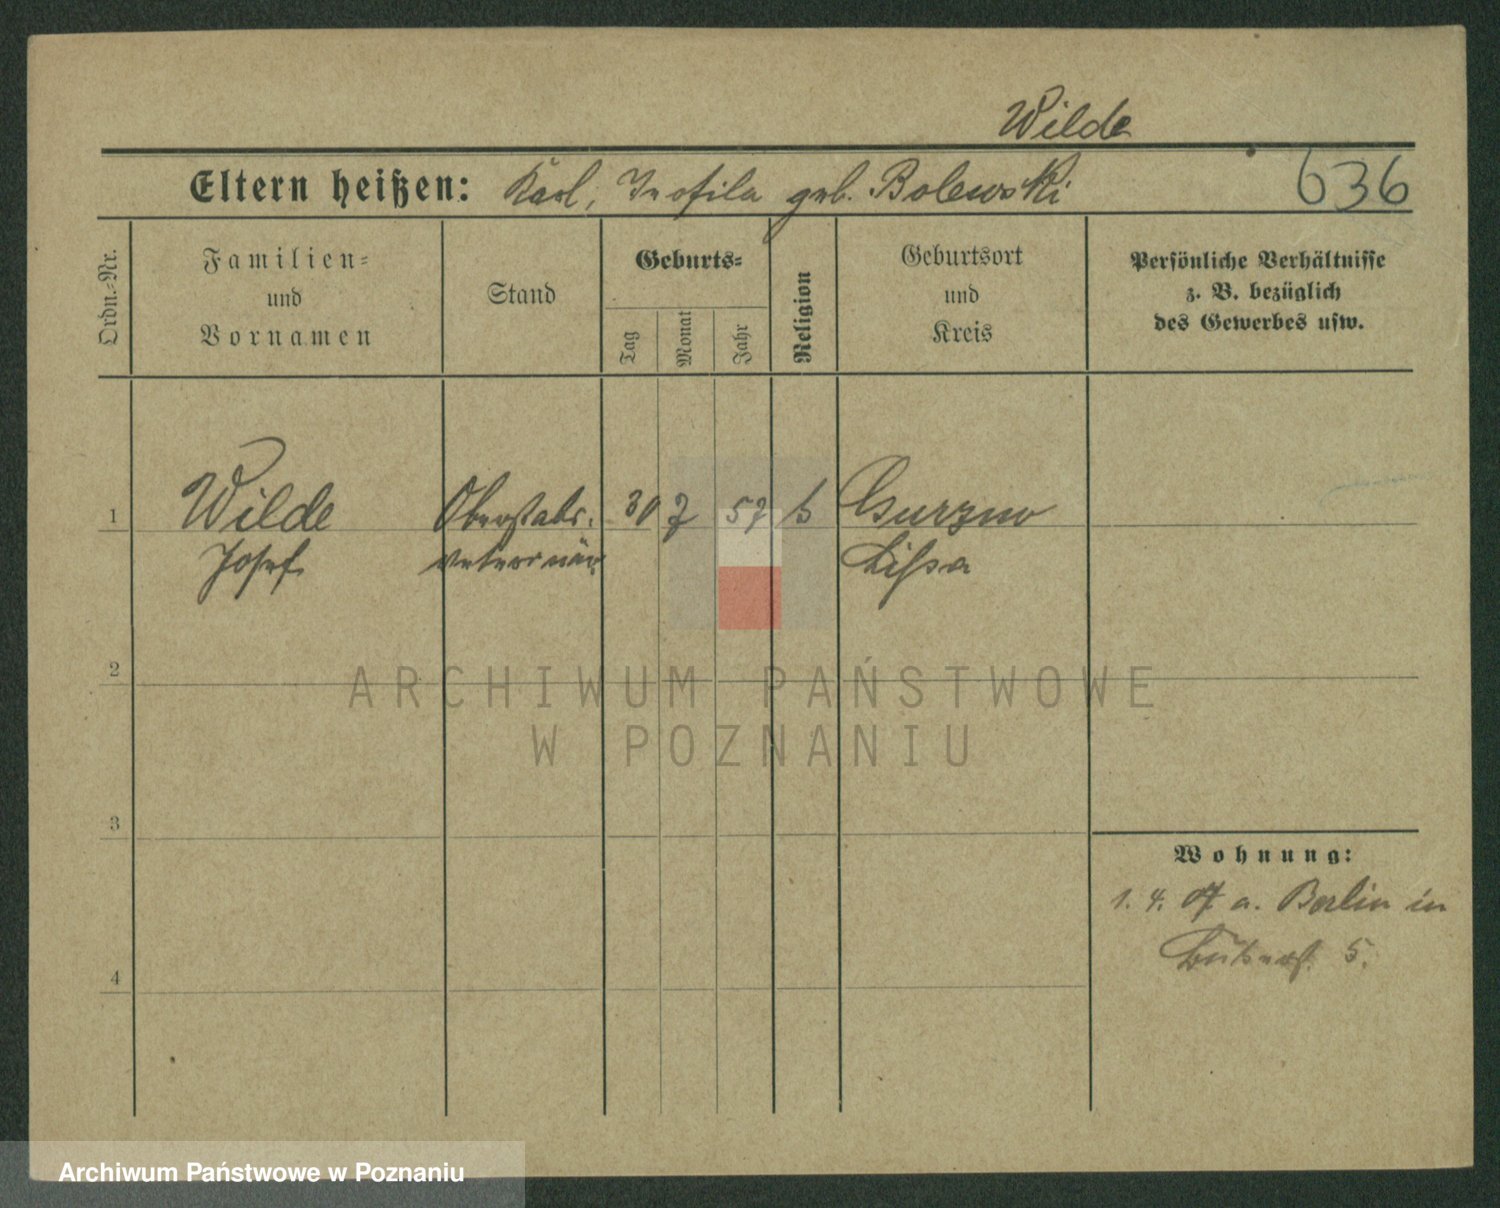 Wilde
Eltern heißen: Karl, Teofila geb. Bolewski
636
Ordn.-Nr.
Familien-
und
Vornamen
Stand
Geburts-
Tag
Monat
Jahr
Religion
Geburtsort
und
Kreis
Persönliche Verhältnisse
z. B. bezüglich
des Gewerbes usw.
1
Wilde
Josef
Oberstabs-
veterinär
30 7 57
Gurzno
Lissa
2
3
4
Wohnung:
1. 4. 07 a. Berlin in
5.
ARCHIWUM PAŃSTWOWE
W POZNANIU
Archiwum Państwowe w Poznaniu